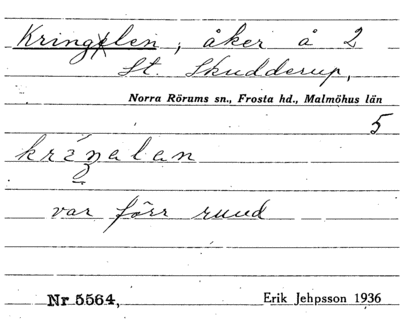 Kringelen, åker å 2
St. Skudderup,
Norra Rörums sn., Frosta hd., Malmöhus län
5
var förr rund
Nr 5564, Erik Jehpsson 1936